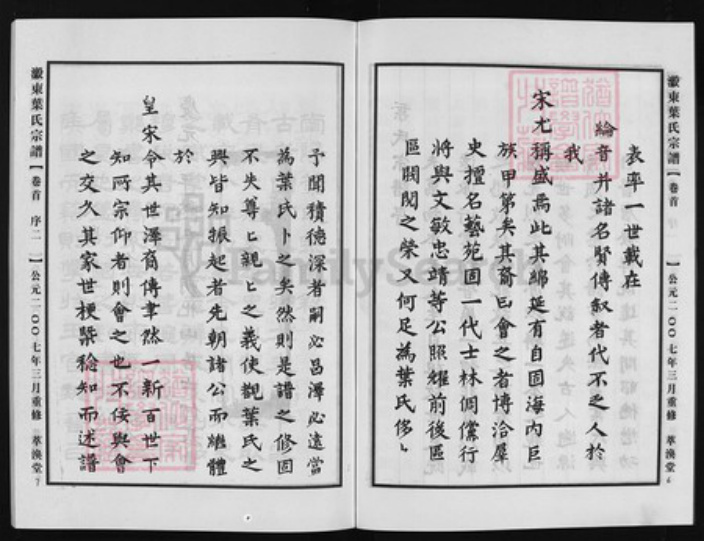 表率一世載在
綸音并諸名賢傳叙者代不乏人於
我
宋尤稱盛焉此其綿延有自固海內巨
族甲第矣其裔曰會之者博洽羣
史擅名藝苑固一代士林倜儻行
將與文敏忠靖等公照耀前後區
區閥閱之榮又何足為葉氏侈々
予聞積德深者嗣必昌澤必遠當
為葉氏卜之矣然則是譜之修固
不失尊々親々之義使觀葉氏之
興皆知振起者先朝諸公而繼體
於
皇宋令其世澤裔傳聿然一新百世下
知所宗仰者則會之也不佞與會
之交久其家世梗槩稔知而述譜
徽東葉氏宗譜【卷首 序一】公元二〇〇七年三月重修 萃渙堂
徽東葉氏宗譜【卷首 序二】公元二〇〇七年三月重修 萃渙堂
FamilySearch